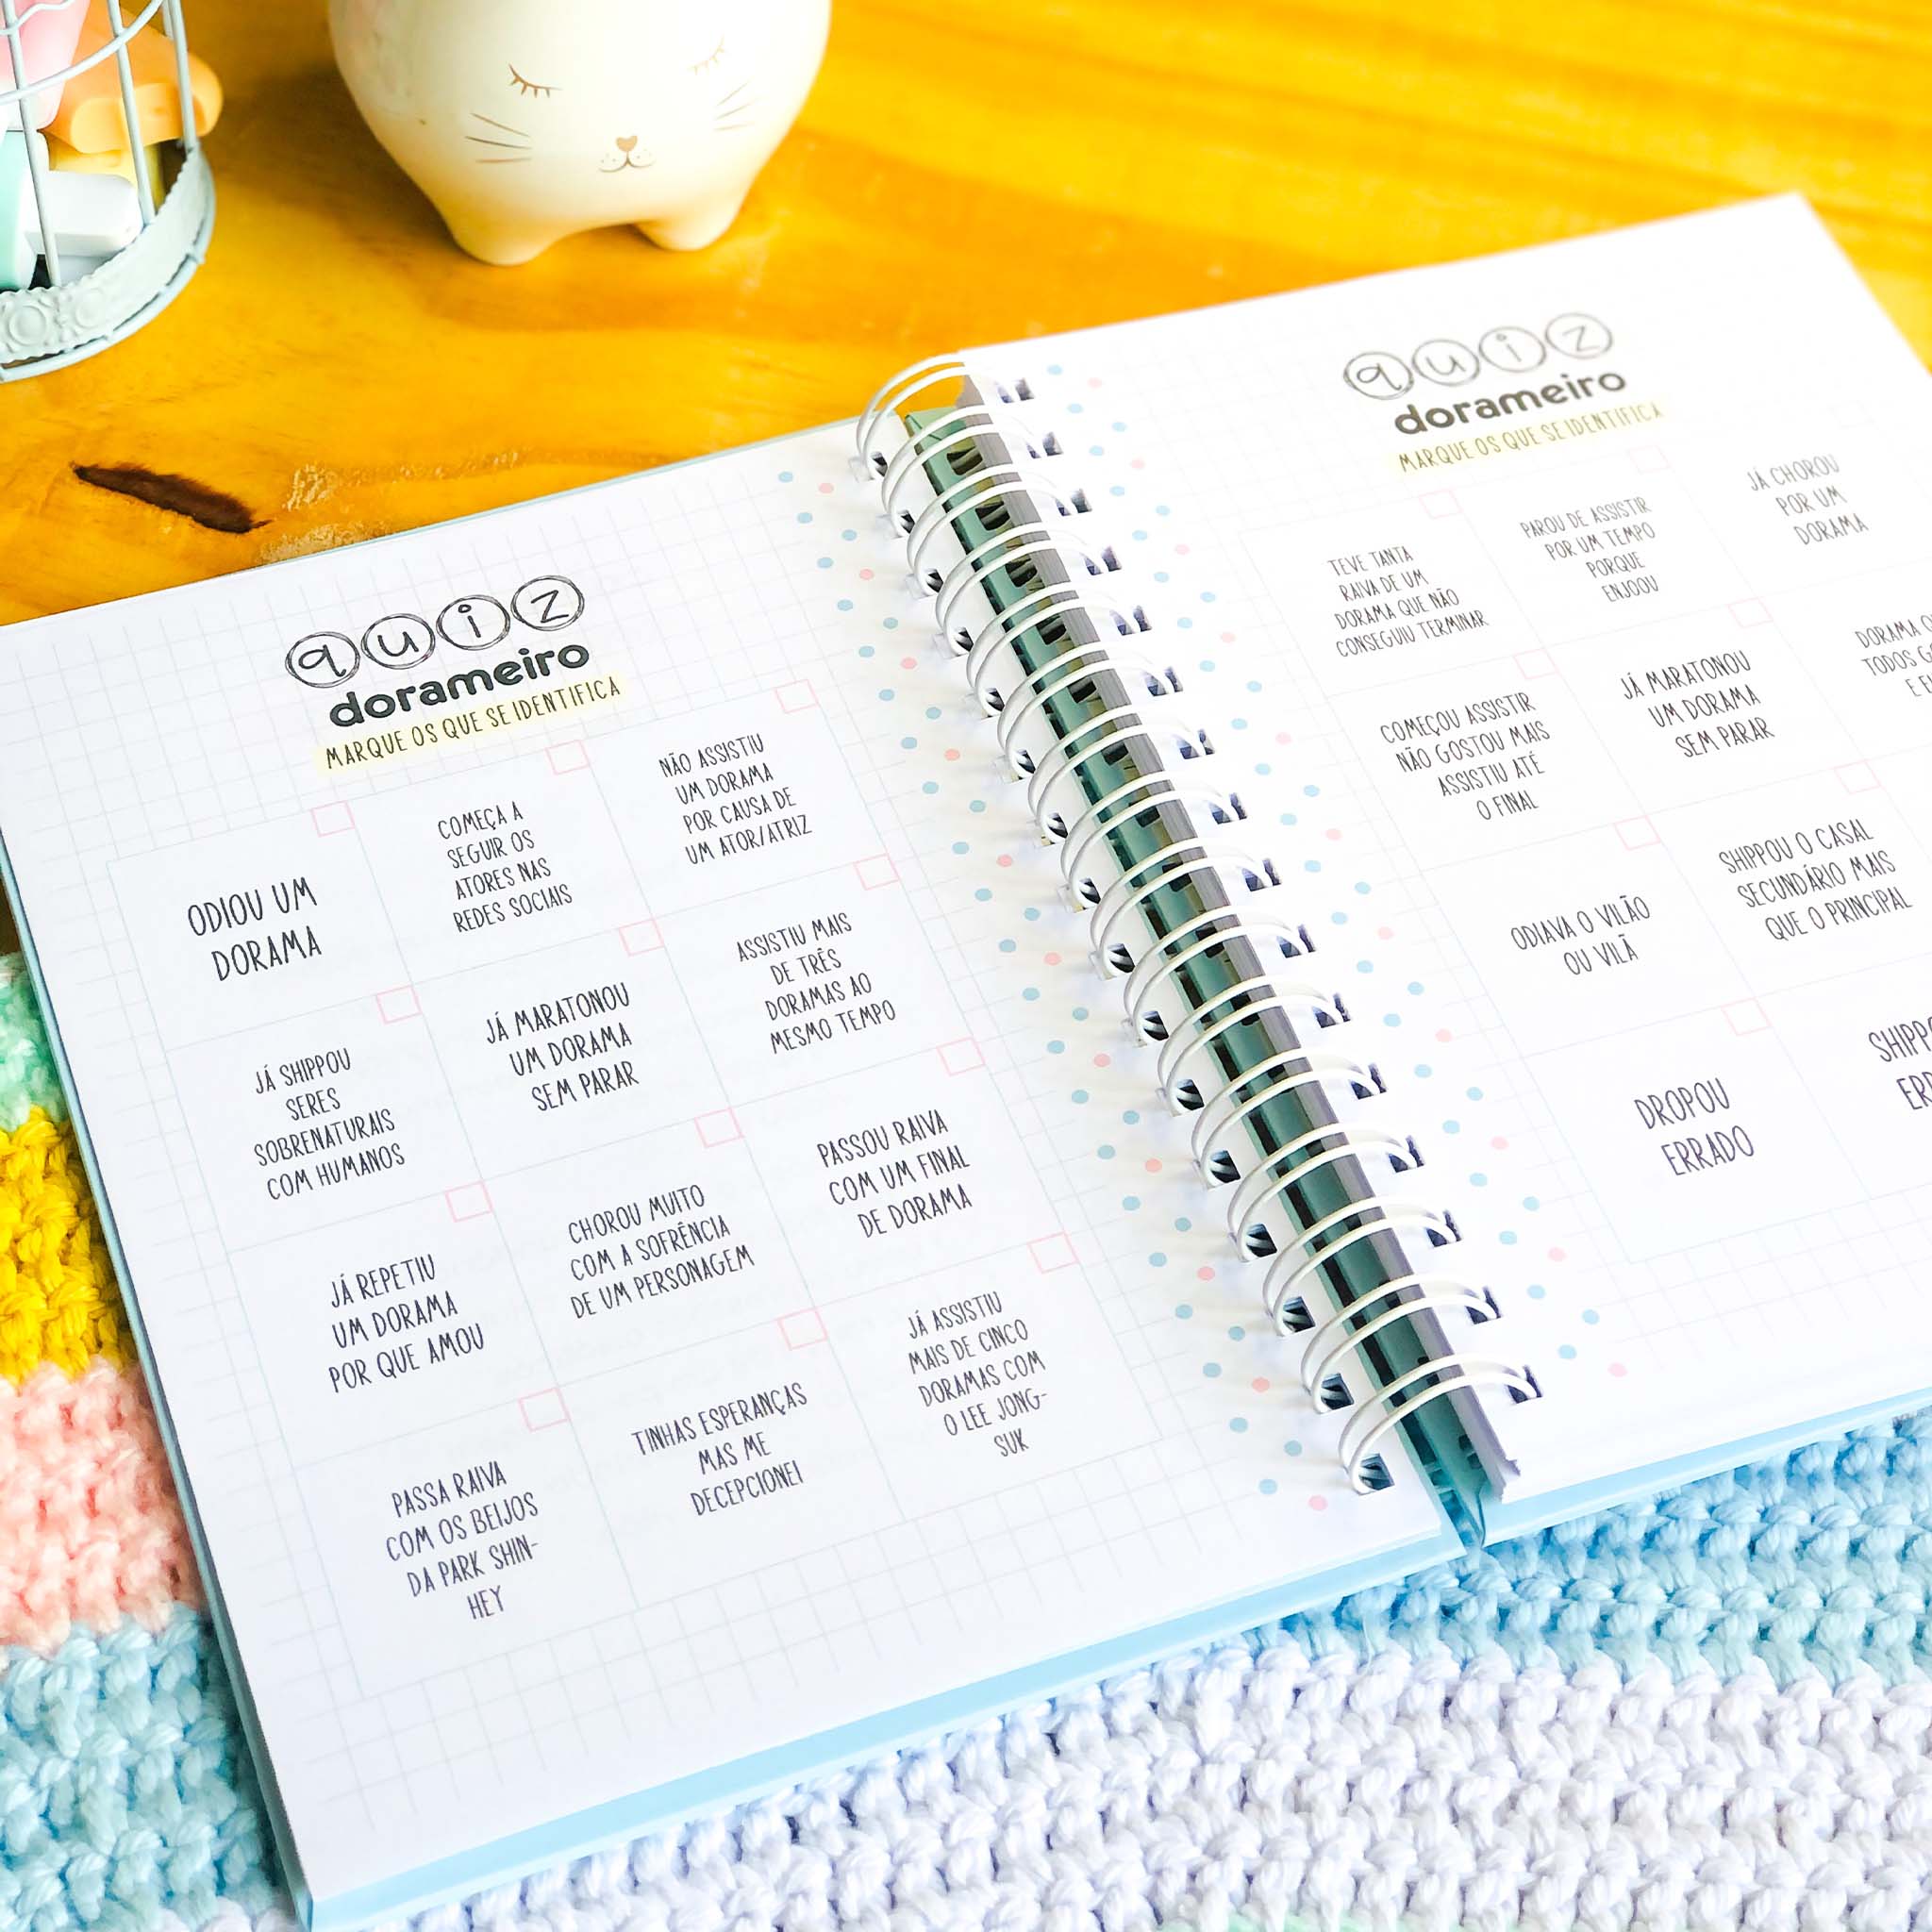 quiz
dorameiro
MARQUE OS QUE SE IDENTIFICA
ODIOU UM
DORAMA
COMEÇA A
SEGUIR OS
ATORES NAS
REDES SOCIAIS
NÃO ASSISTIU
UM DORAMA
POR CAUSA DE
UM ATOR/ATRIZ
JÁ SHIPPOU
SERES
SOBRENATURAIS
COM HUMANOS
JÁ MARATONOU
UM DORAMA
SEM PARAR
ASSISTIU MAIS
DE TRÊS
DORAMAS AO
MESMO TEMPO
JÁ REPETIU
UM DORAMA
POR QUE AMOU
CHOROU MUITO
COM A SOFRÊNCIA
DE UM PERSONAGEM
PASSOU RAIVA
COM UM FINAL
DE DORAMA
PASSA RAIVA
COM OS BEIJOS
DA PARK SHIN-
HEY
TINHAS ESPERANÇAS
MAS ME
DECEPCIONEI
JÁ ASSISTIU
MAIS DE CINCO
DORAMAS COM
O LEE JONG-
SUK
quiz
dorameiro
MARQUE OS QUE SE IDENTIFICA
TEVE TANTA
RAIVA DE UM
DORAMA QUE NÃO
CONSEGUIU TERMINAR
PAROU DE ASSISTIR
POR UM TEMPO
PORQUE
ENJOOU
JÁ CHOROU
POR UM
DORAMA
COMEÇOU ASSISTIR
NÃO GOSTOU MAIS
ASSISTIU ATÉ
O FINAL
JÁ MARATONOU
UM DORAMA
SEM PARAR
DORAMA
TODOS
E
ODIAVA O VILÃO
OU VILÃ
SHIPPOU O CASAL
SECUNDÁRIO MAIS
QUE O PRINCIPAL
DROPOU
ERRADO